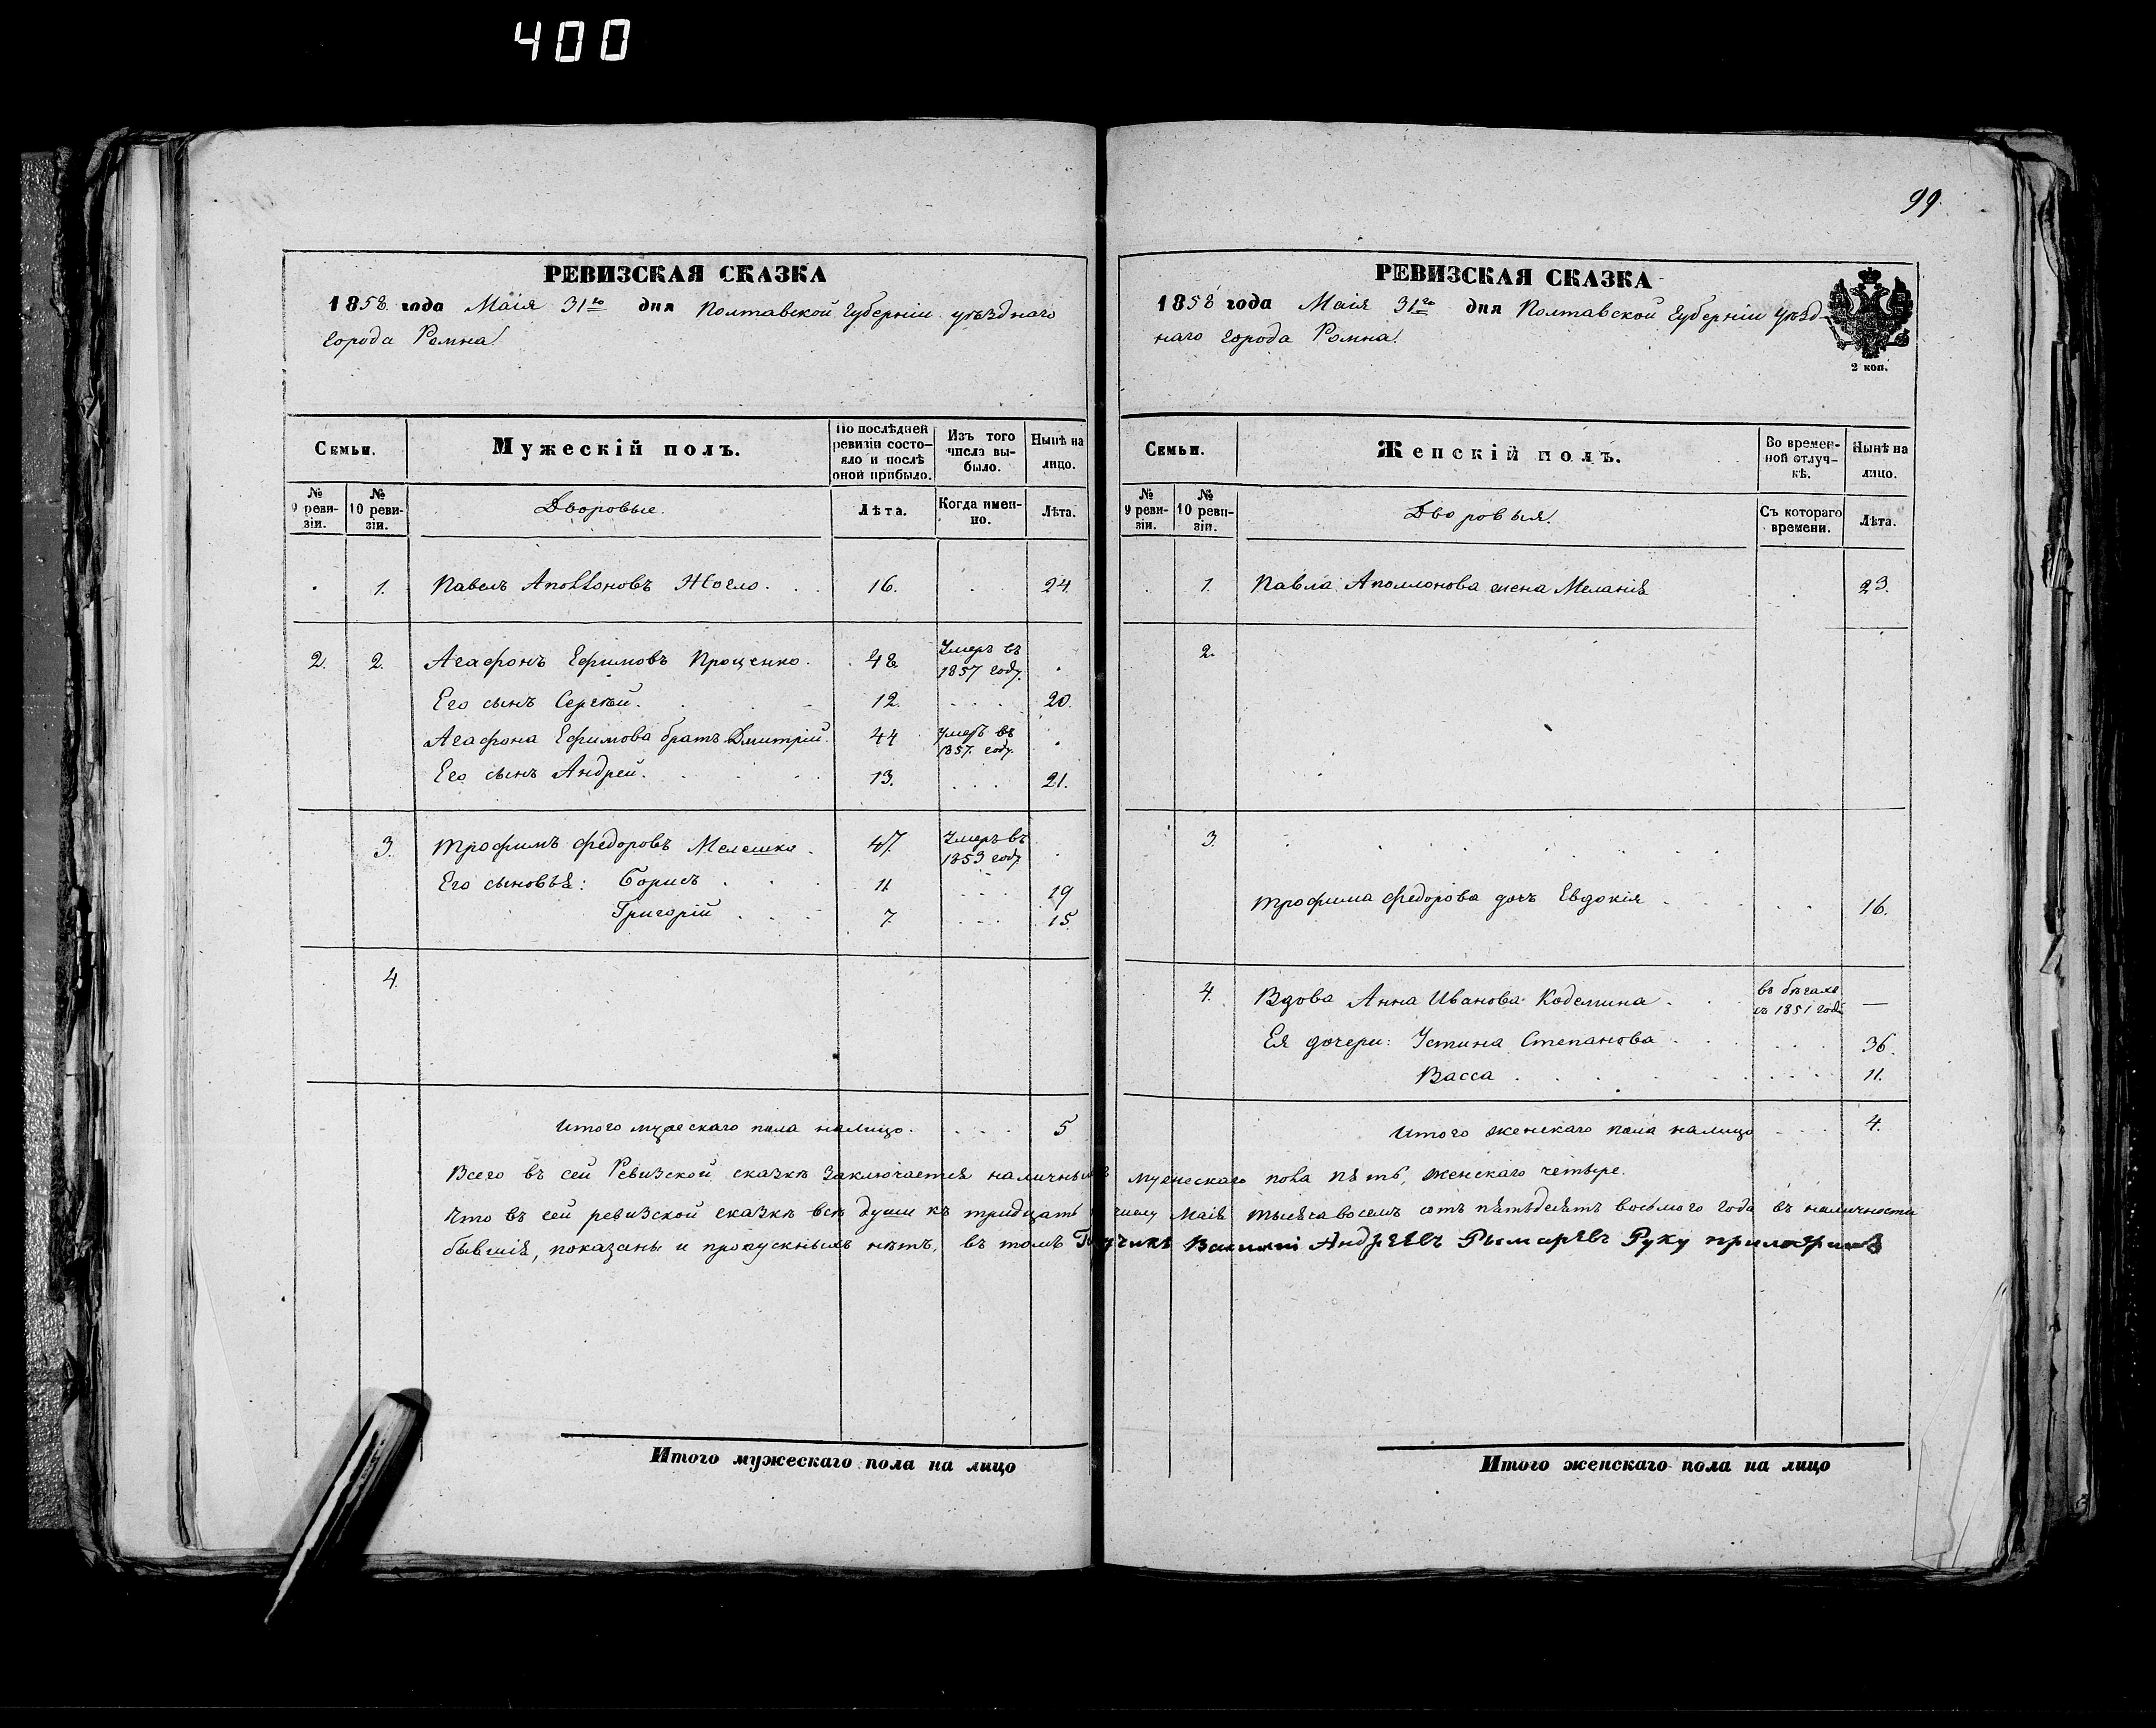 400
99.
РЕВИЗСКАЯ СКАЗКА
1858 года Маія 31го дня Полтавской Губерніи уѣзднаго
города Ромна.
Семьи.
Мужескій полъ.
По послѣдней ревизіи состояло и послѣ оной прибыло.
Изъ того числа выбыло.
Нынѣ на лицо.
№ 9 ревизіи.
№ 10 ревизіи.
Дворовые.
Лѣта.
Когда именно.
Лѣта.
1. Павелъ Аполлоновъ Жогло. 16. 24.
2. 2. Агафонъ Ефимовъ Проценко. 48. Умеръ въ 1857 году.
Его сынъ Сергѣй. 12. 20.
Агафона Ефимова братъ Дмитрій. 44 Умеръ въ 1857 году.
Его сынъ Андрей. 13. 21.
3. Трофимъ Федоровъ Мелешко. 47. Умеръ въ 1853 году
Его сыновья: Борисъ 11 19
Григорій 7. 15.
4.
Итого мужескаго пола налицо. 5
РЕВИЗСКАЯ СКАЗКА
1858 года Маія 31го дня Полтавской Губерніи уѣзд-
наго города Ромна.
2 коп.
Семьи.
Женскій полъ.
Во временной отлучкѣ.
Нынѣ на лицо.
№ 9 ревизіи.
№ 10 ревизіи.
Дворовыя.
Съ котораго времени.
Лѣта.
1. Павла Аполлонова жена Меланія 23.
2.
3.
Трофима Федорова дочь Евдокія 16.
4. Вдова Анна Иванова въ бѣгахъ съ 1851 года —
Ея дочери: Устина Степанова 36.
Васса 11.
Итого женскаго пола налицо 4.
Всего въ сей Ревизской сказкѣ заключается наличныхъ мужескаго пола пять, женскаго четыре.
Что въ сей ревизской сказкѣ всѣ души къ тридцать числу Маія тысяча восемь сотъ пятьдесятъ восьмого года въ наличности
бывшія, показаны и пропускныхъ нѣтъ, въ томъ Поручикъ Василий Андрѣевъ Рымарѣвъ Руку приложилъ
Итого мужескаго пола на лицо
Итого женскаго пола на лицо